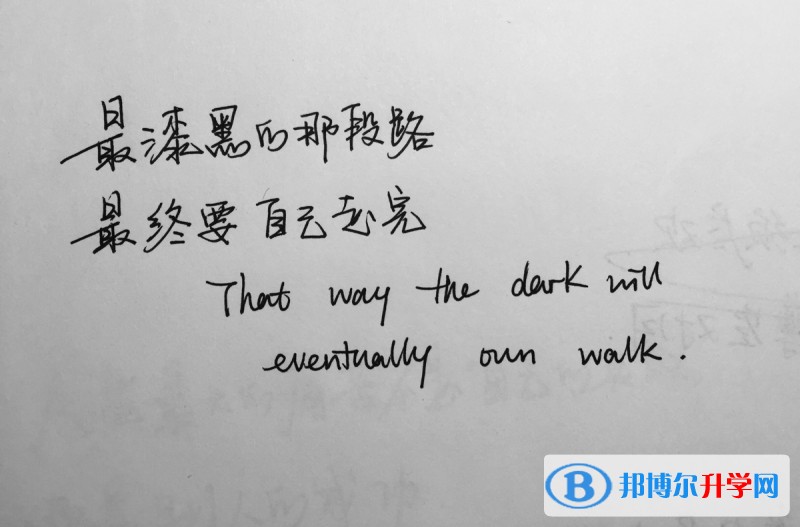 最漆黑的那段路
最终要自己走完
That way the dark will
eventually own walk.
邦博尔升学网